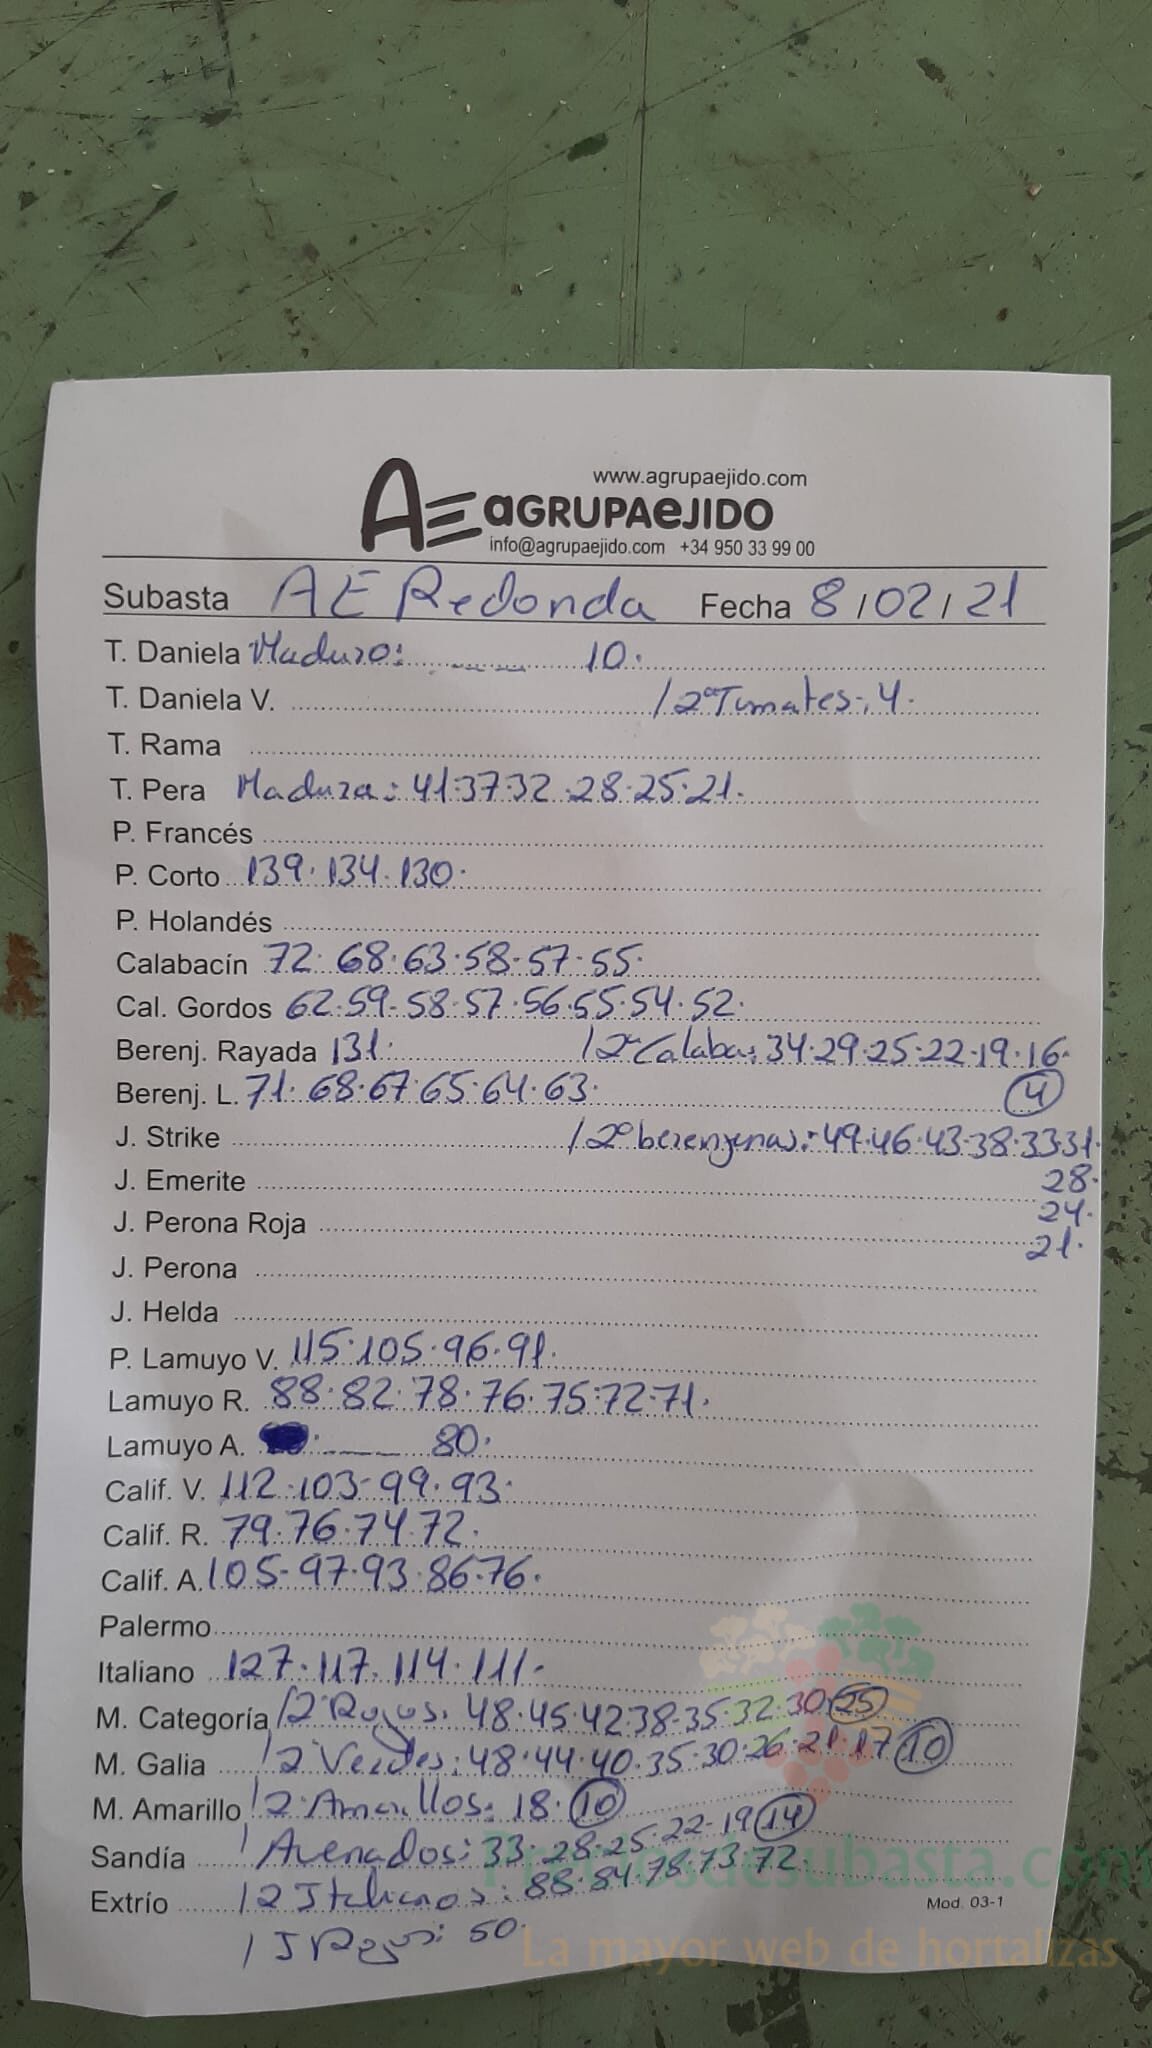 www.agrupaejido.com
AE aGRUPAeJIDO
info@agrupaejido.com +34 950 33 99 00
Subasta AE Redonda Fecha 8/02/21
T. Daniela Maduro: 10.
T. Daniela V. / 2ª Tomates: 4.
T. Rama
T. Pera Madura: 41·37·32·28·25·21.
P. Francés
P. Corto 139·134·130·
P. Holandés
Calabacín 72·68·63·58·57·55·
Cal. Gordos 62·59·58·57·56·55·54·52·
Berenj. Rayada 131· / 2ª Calaba: 34·29·25·22·19·16·
Berenj. L. 71·68·67·65·64·63· 4
J. Strike / 2ª berenjenas: 49·46·43·38·33·31·
J. Emerite 28·
24·
J. Perona Roja
21·
J. Perona
J. Helda
P. Lamuyo V. 115·105·96·91·
Lamuyo R. 88·82·78·76·75·72·71·
Lamuyo A. 80·
Calif. V. 112·103·99·93·
Calif. R. 79·76·74·72·
Calif. A. 105·97·93·86·76·
Palermo
Italiano 127·117·114·111·
M. Categoría / 2 Rojos: 48·45·42·38·35·32·30· 25
M. Galia / 2 Verdes: 48·44·40·35·30·26·21·17 10
M. Amarillo / 2 Amarillos: 18· 10
Sandía / Avenados: 33·28·25·22·19 14
Extrío / 2 Italianos: 88·84·78·73·72·
/ J 50·
Mod. 03-1
Preciosdesubasta.com
La mayor web de hortalizas